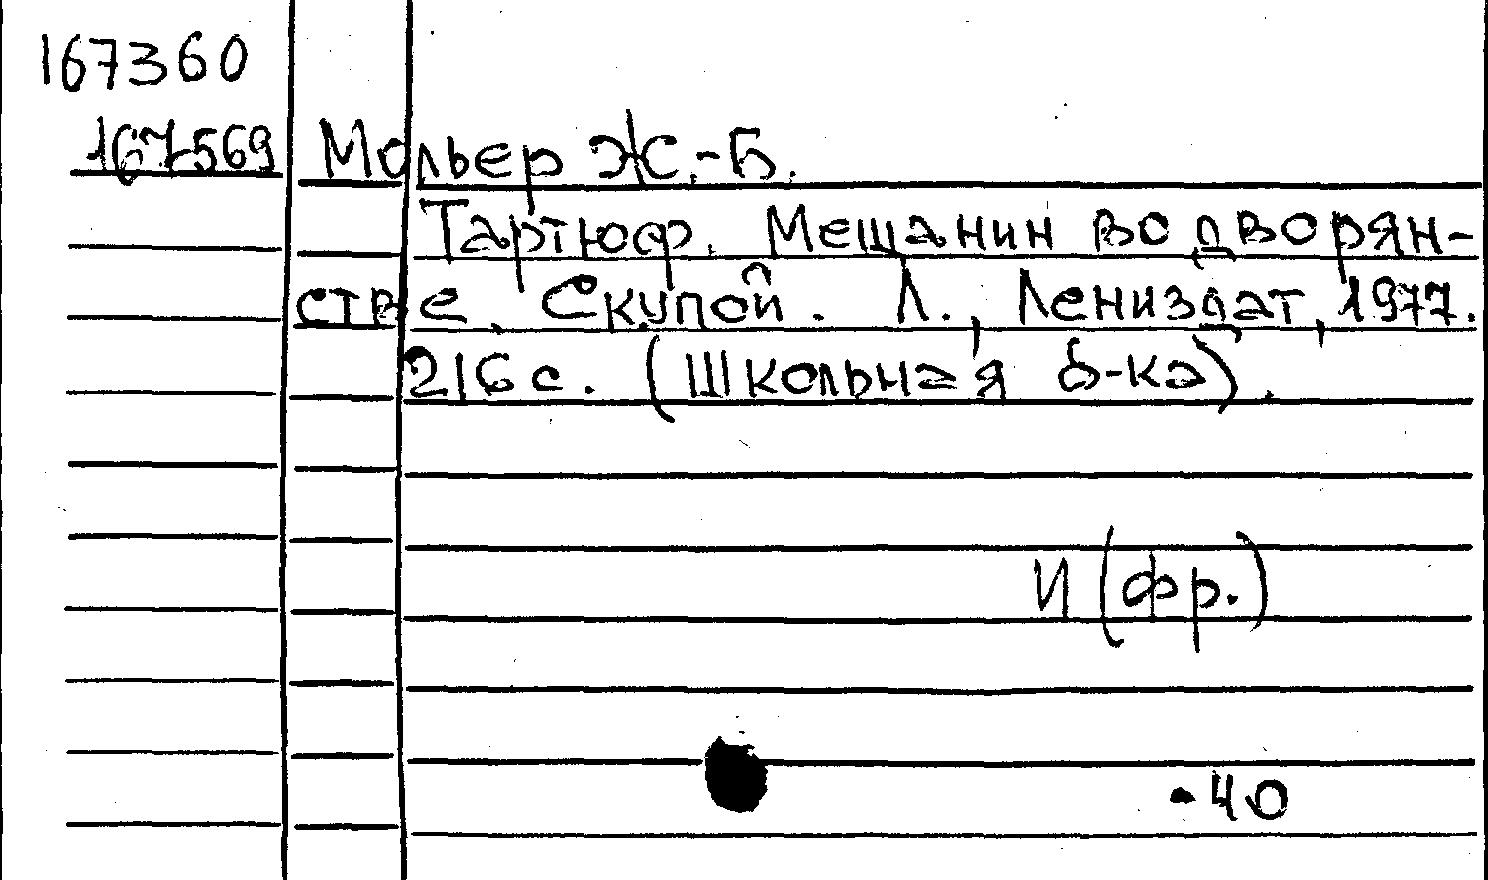 167360
167569 Мольер Ж.-Б.
Тартюф. Мещанин во дворян-
стве. Скупой. Л., Лениздат, 1977.
216 с. (Школьная б-ка).
И (фр.)
-40